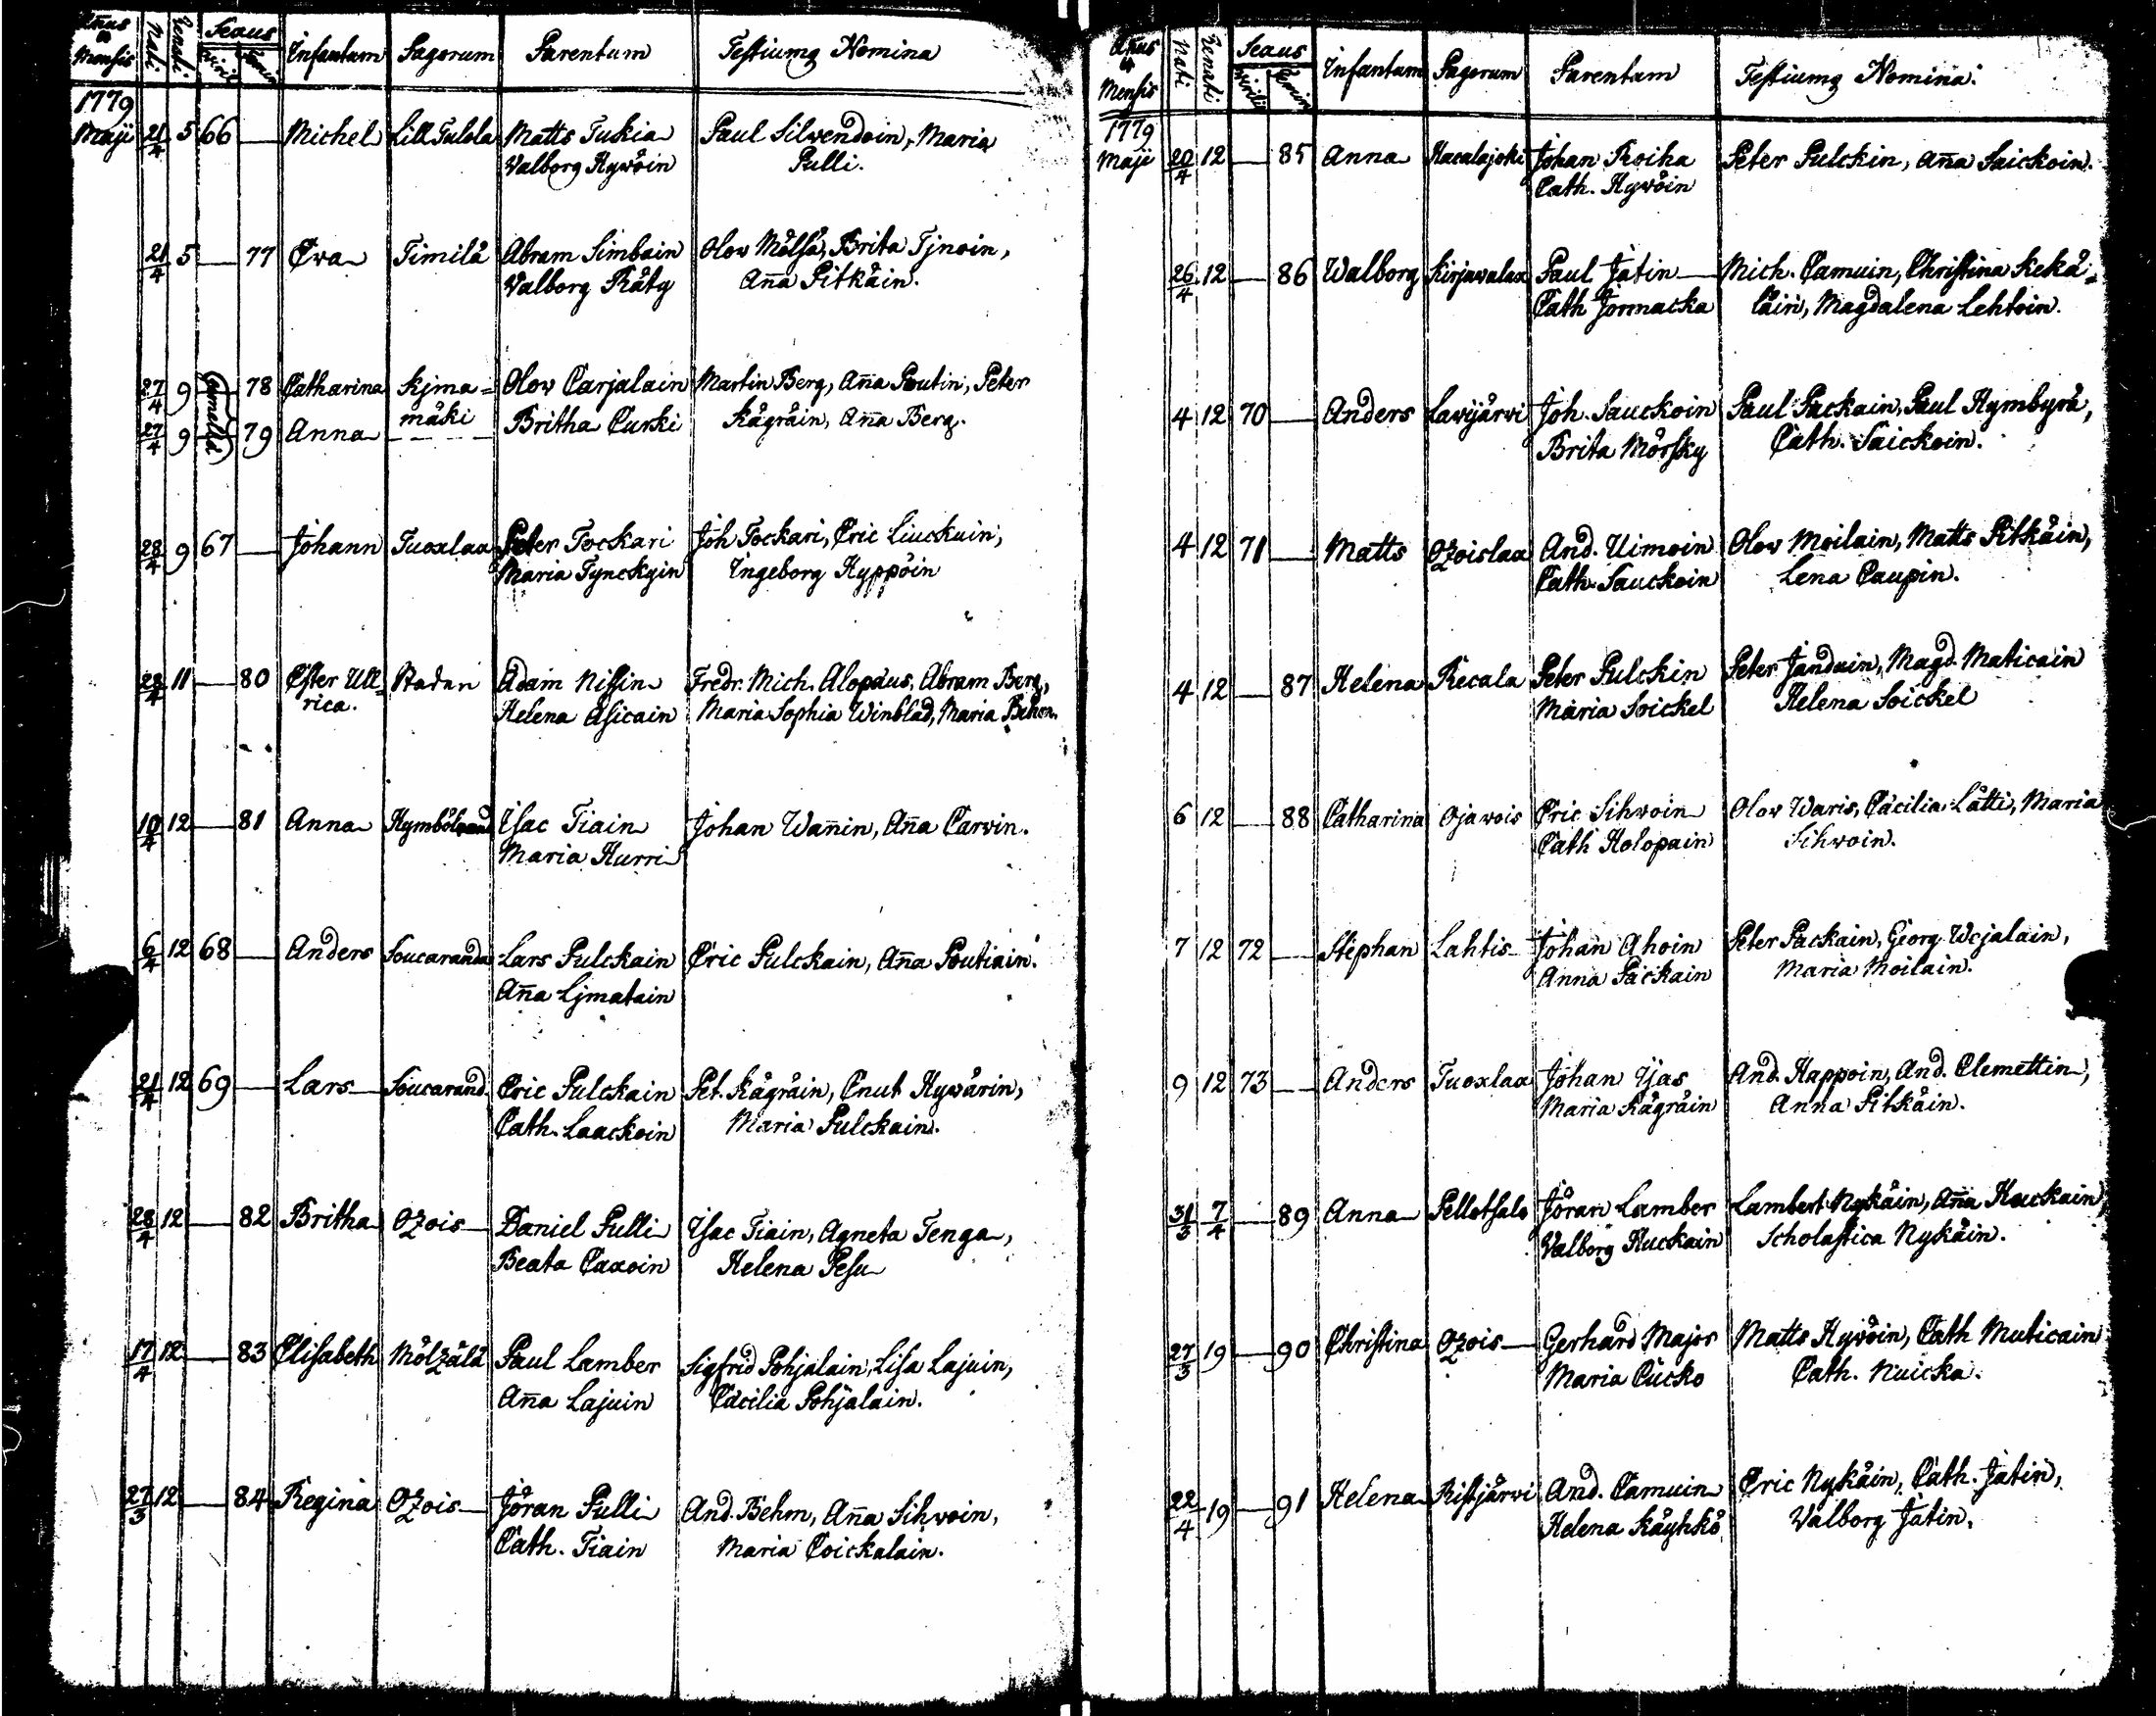 Añus & Mensis Nati Renati Sexus Infantum Pagorum Parentum Testiumq Nomina
Virilis
1779
Maji 21/4 5 66 — Michel Lill Tulola Matts Tuskia Paul Silvendoin, Maria
Valborg Hywöin Pulli.
21/4 5 — 77 Ewa Timilä Abram Simbain Olov Mölsä, Brita Tjnoin,
Valborg Räty Aña Pitkäin.
27/4 9 — 78 Catharina Kjma= Olov Carjalain Martin Berg, Aña Poutin, Peter
gemelli mäki Britha Curki Kägräin, Aña Berg.
27/4 9 — 79 Anna
28/4 9 67 — Johann Tuoxlax Peter Tockari Joh Tockari, Eric Liuckuin,
Maria Tynckyin Ingeborg Hyppöin
28/4 11 — 80 Ester Ull= Staden Adam Nissin Fredr. Mich. Alopæus, Abram Berg,
rica. Helena Asicain Maria Sophia Winblad, Maria
10/4 12 — 81 Anna Isac Tiain Johan Wañin, Aña Carvin.
Maria Hurri
6/4 12 68 — Anders Soucaranda Lars Pulckain Eric Pulckain, Aña Poutiain.
Aña Ljmatain
21/4 12 69 — Lars Soucarand. Eric Pulckain Pet. Kägräin, Cnut Hywärin,
Cath. Laackoin Maria Pulckain.
28/4 12 — 82 Britha Ozois Daniel Pulli Isac Tiain, Agneta Tenga,
Beata Caxoin Helena Pesu
17/4 12 — 83 Elisabeth Mölzälä Paul Lamber Sigfrid Pohjalain, Lisa Lajuin,
Aña Lajuin Cæcilia Pohjalain.
27/3 12 — 84 Regina Ozois Jöran Pulli And. Behm, Aña Sihvoin,
Cath. Tiain Maria Coickalain.
Añus & Mensis Nati Renati Sexus Infantum Pagorum Parentum Testiumq Nomina.
Virilis
1779
Maji 20/4 12 — 85 Anna Hacalajoki Johan Roiha Peter Pulckin, Aña Saickoin.
Cath. Hywöin
26/4 12 — 86 Walborg Kirjawalax Paul Jatin Mich. Camuin, Christina Kekä=
Cath Jormacka läin, Magdalena Lehtoin.
4 12 70 — Anders Lavijärvi Joh. Sauckoin Paul Packain, Paul Hymbyrä,
Brita Mörsky Cath. Saickoin.
4 12 71 — Matts Ozoislax And. Uimoin Olov Moilain, Matts Pitkäin,
Cath. Sauckoin Lena Caupin.
4 12 — 87 Helena Recala Peter Pulckin Peter Janduin, Magd. Maticain
Maria Soickel Helena Soickel
6 12 — 88 Catharina Ojavois Eric Sihvoin Olov Waris, Cæcilia Lätti, Maria
Cath Holopain Sihvoin.
7 12 72 — Stephan Lahtis Johan Ahoin Peter Packain, Georg Wejalain,
Anna Packain Maria Moilain.
9 12 73 — Anders Tuoxlax Johan Ijas And. Happoin, And. Clemettin,
Maria Kägräin Anna Pitkäin.
31/3 7/4 — 89 Anna Pellotsalo Jöran Lamber Lambert Nykäin, Aña Huckain,
Valborg Huckain Scholastica Nykäin.
27/3 19 — 90 Christina Ozois Gerhard Major Matts Hywöin, Cath Muticain
Maria Cucko Cath. Nuicka.
22/4 19 — 91 Helena Ristjärvi And. Camuin Eric Nykäin, Cath. Jatin,
Helena Käyhkö Valborg Jatin.